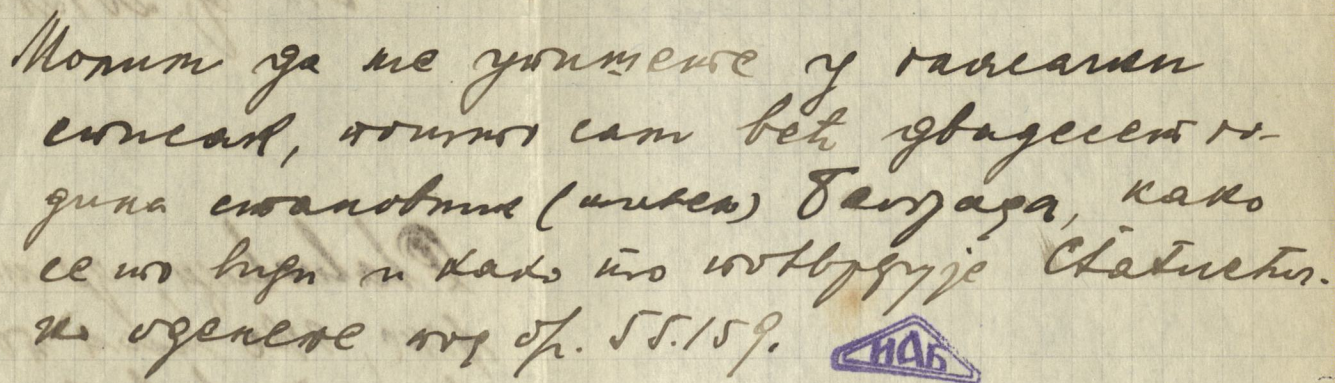 Молим да ме упишете у гласачки
списак, пошто сам већ двадесет го-
дина становник (житељ) Београда, како
се то види и како то потврђује Статистич-
ко одељење под бр. 55.159.
ИАБ